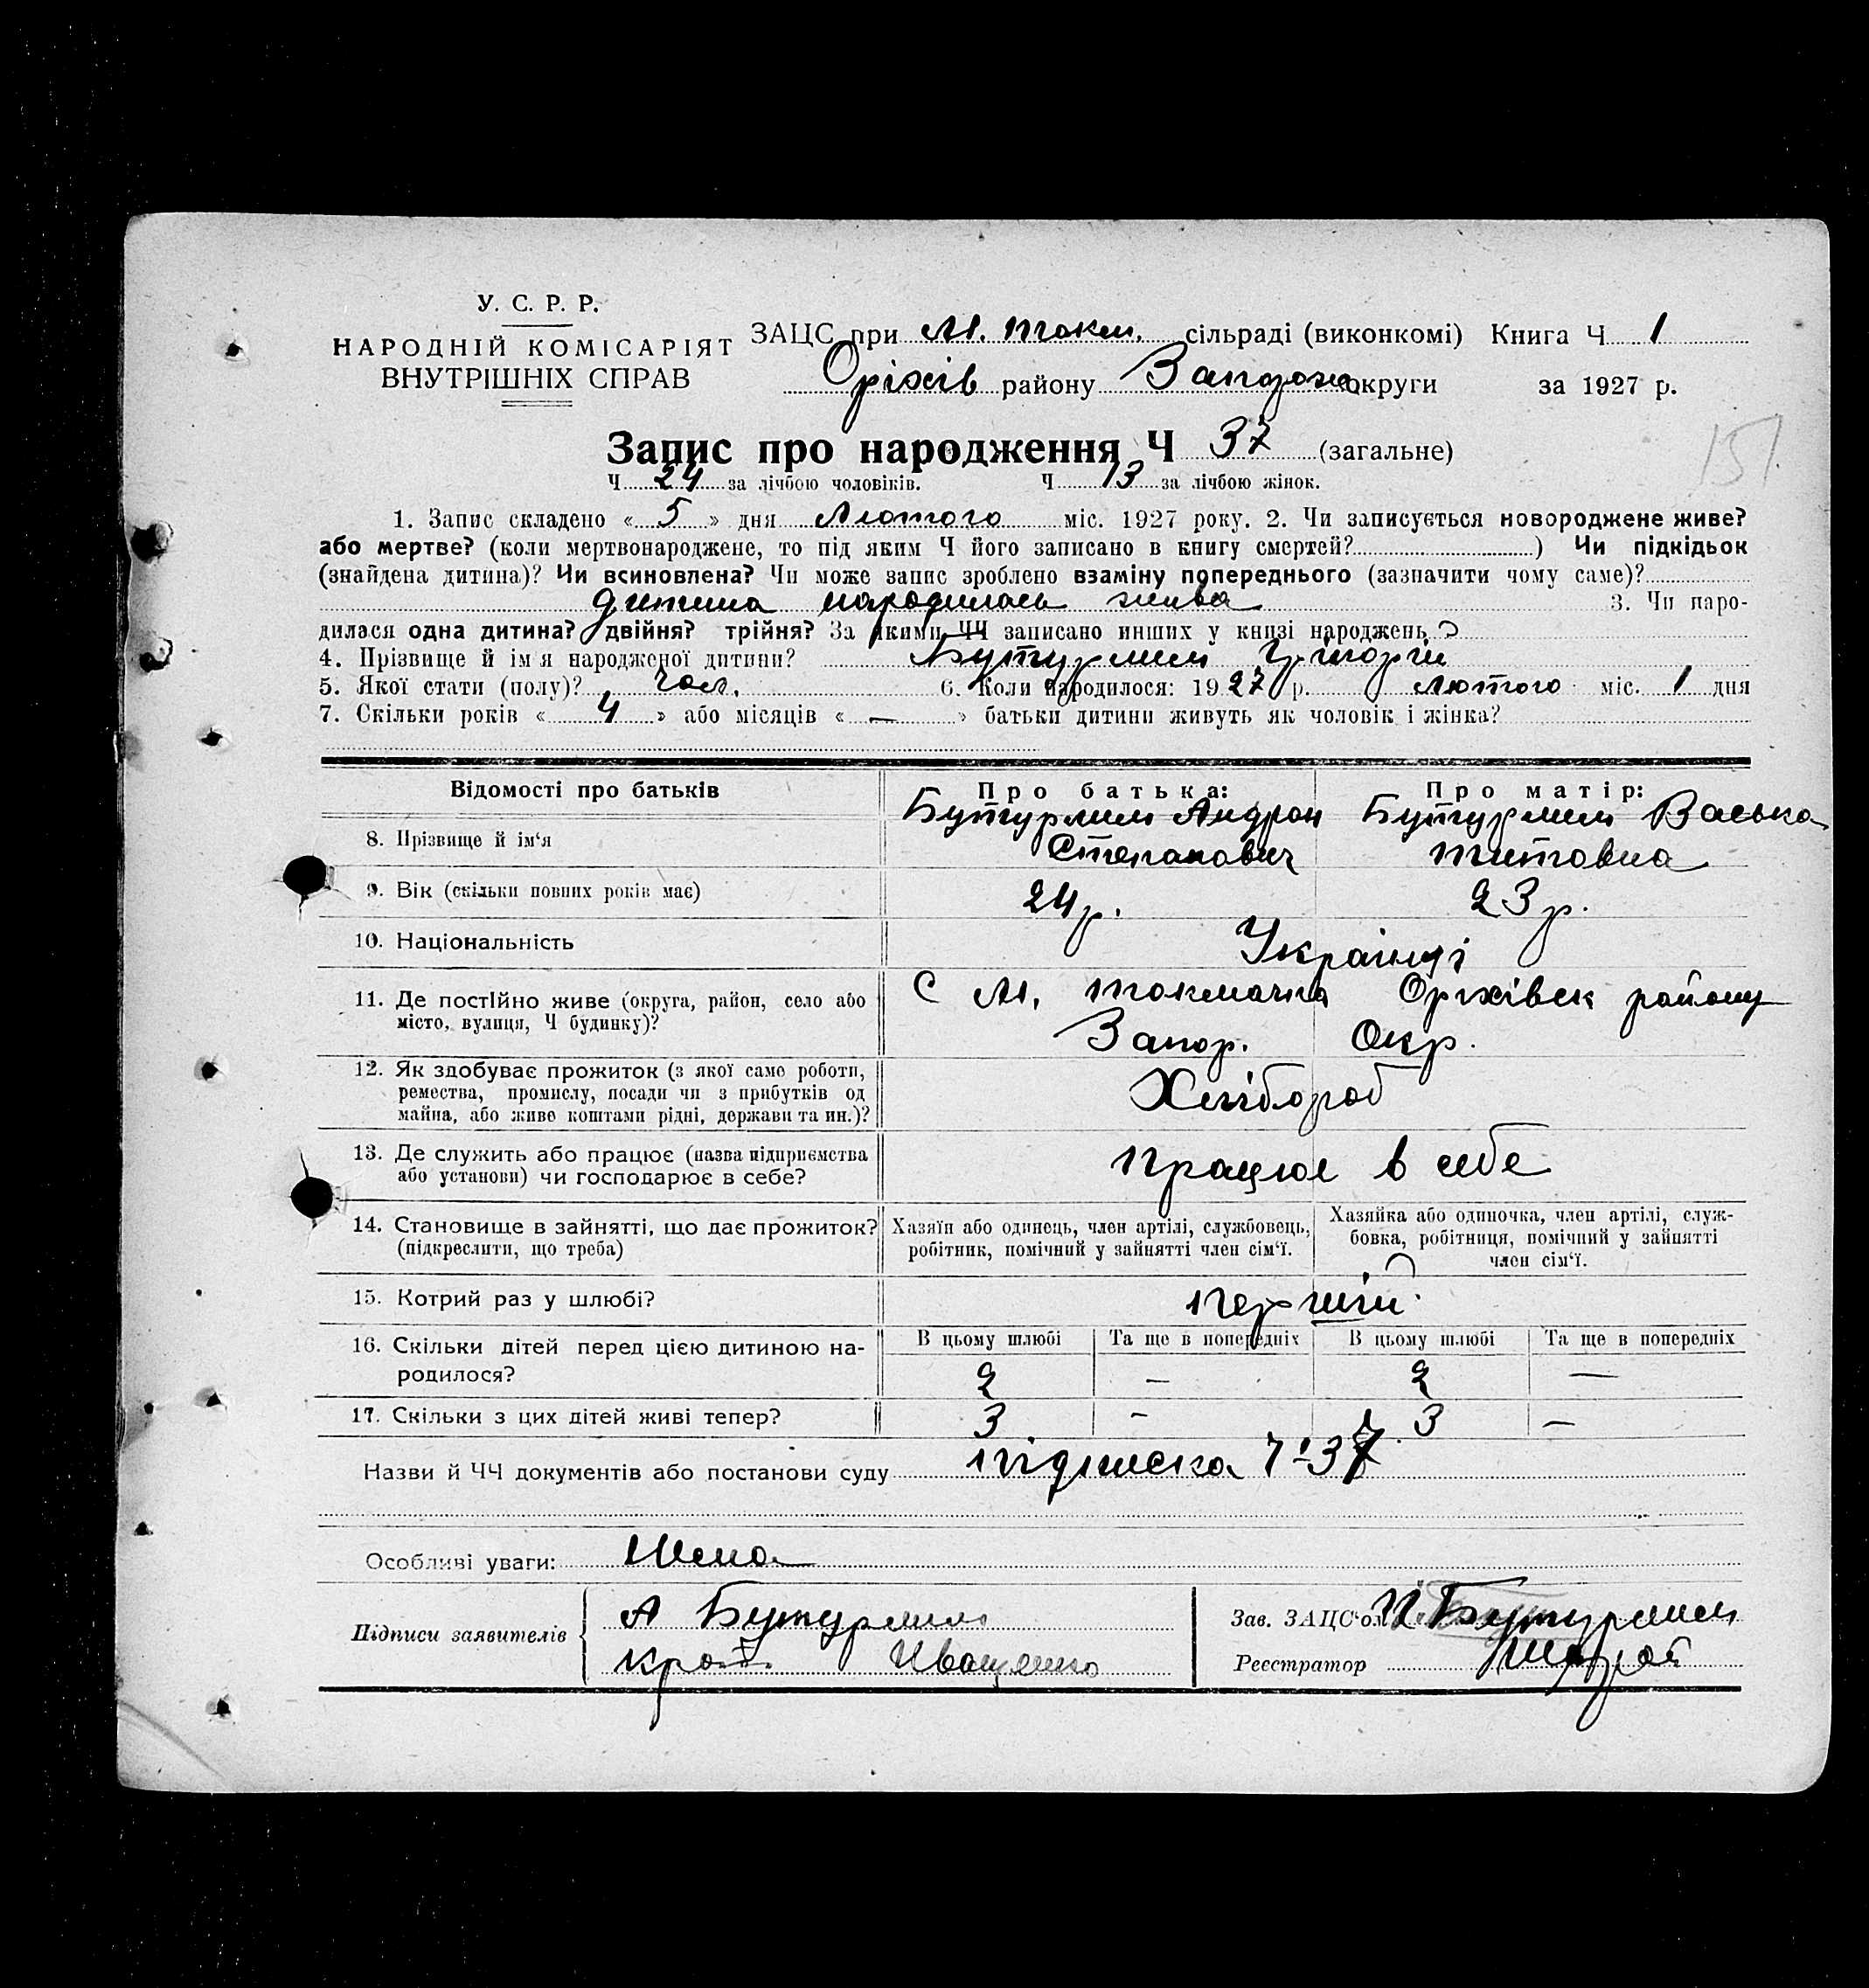 У. С. Р. Р.
НАРОДНІЙ КОМІСАРІЯТ
ВНУТРІШНІХ СПРАВ
ЗАЦС при М. Токм. сільраді (виконкомі) Книга Ч 1
Оріхів району Запорож округи за 1927 р.
151
Запис про народження Ч 37 (загальне)
Ч 24 за лічбою чоловіків. Ч 13 за лічбою жінок.
1. Запис складено «5» дня Лютого міс. 1927 року. 2. Чи записується новороджене живе?
або мертве? (коли мертвонароджене, то під яким Ч його записано в книгу смертей?) Чи підкідьок
(знайдена дитина)? Чи всиновлена? Чи може запис зроблено взаміну попереднього (зазначити чому саме)?
дитина народилась жива 3. Чи наро-
дилася одна дитина? двійня? трійня? За якими ЧЧ записано инших у книзі народжень?
4. Прізвище й ім'я народженої дитини? Бутурлим Григорій
5. Якої стати (полу)? чол. 6. Коли народилося: 1927 р. Лютого міс. 1 дня
7. Скільки років «4» або місяців «—» батьки дитини живуть як чоловік і жінка?
Відомості про батьків Про батька: Про матір:
8. Прізвище й ім'я Бутурлим Андрон Степанович Бутурлим Васька Титовна
9. Вік (скільки повних років має) 24 р. 23 р.
10. Національність Українці
11. Де постійно живе (округа, район, село або С М. Токмачка Оріхівск району
місто, вулиця, Ч будинку)? Запор. Окр.
12. Як здобуває прожиток (з якої саме роботи,
ремества, промислу, посади чи з прибутків од Хлібороб
майна, або живе коштами рідні, держави та ин.)?
13. Де служить або працює (назва підприємства
або установи) чи господарює в себе? працює в себе
14. Становище в зайнятті, що дає прожиток?
(підкреслити, що треба)
Хазяїн або одинець, член артілі, службовець,
робітник, помічний у зайнятті член сім'ї.
Хазяйка або одиночка, член артілі, служ-
бовка, робітниця, помічний у зайнятті
член сім'ї.
15. Котрий раз у шлюбі? перший
16. Скільки дітей перед цією дитиною на-
родилося?
В цьому шлюбі Та ще в попередніх В цьому шлюбі Та ще в попередніх
2 — 2 —
17. Скільки з цих дітей живі тепер? 3 — 3 —
Назви й ЧЧ документів або постанови суду підписка Ч 37
Особливі уваги: Нема
Підписи заявителів А Бутурлим
Иващенко
Зав. ЗАЦС'ом Бутурлим
Реєстратор